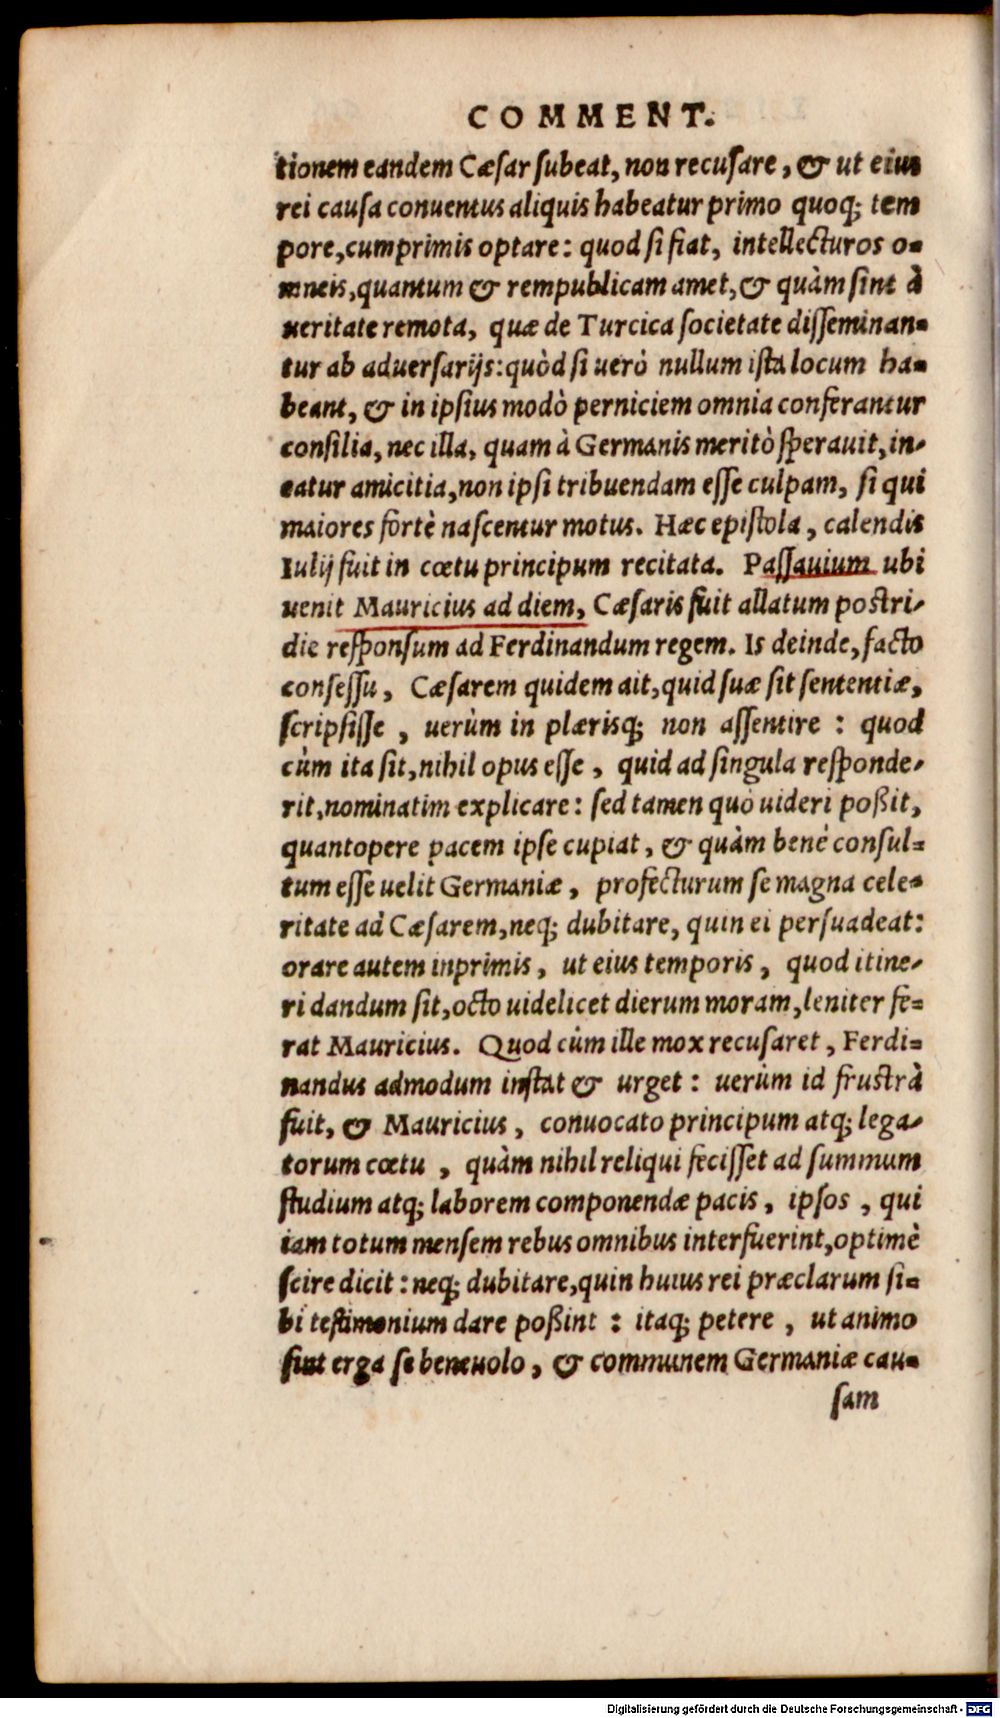 COMMENT.
tionem eandem Cæſar ſubeat, non recuſare, & ut eius
rei cauſa conuentus aliquis habeatur primo quoq; tem
pore, cumprimis optare: quod ſi fiat, intellecturos o-
mneis, quantum & rempublicam amet, & quàm ſint à
ueritate remota, quæ de Turcica ſocietate diſſeminan-
tur ab aduerſarijs: quòd ſi uerò nullum iſta locum ha-
beant, & in ipſius modò perniciem omnia conferantur
conſilia, nec illa, quam à Germanis meritò ſperauit, in-
eatur amicitia, non ipſi tribuendam eſſe culpam, ſi qui
maiores fortè naſcentur motus. Hæc epiſtola, calendis
Iulij fuit in cœtu principum recitata. Paſſauium ubi
uenit Mauricius ad diem, Cæſaris fuit allatum poſtri-
die reſponſum ad Ferdinandum regem. Is deinde, facto
conſeſſu, Cæſarem quidem ait, quid ſuæ ſit ſententiæ,
ſcripſiſſe, uerùm in plæriſq; non aſſentire: quod
cùm ita ſit, nihil opus eſſe, quid ad ſingula reſponde-
rit, nominatim explicare: ſed tamen quò uideri poßit,
quantopere pacem ipſe cupiat, & quàm benè conſul-
tum eſſe uelit Germaniæ, profecturum ſe magna cele-
ritate ad Cæſarem, neq; dubitare, quin ei perſuadeat:
orare autem inprimis, ut eius temporis, quod itine-
ri dandum ſit, octo uidelicet dierum moram, leniter fe-
rat Mauricius. Quod cùm ille mox recuſaret, Ferdi-
nandus admodum inſtat & urget: uerùm id fruſtrà
fuit, & Mauricius, conuocato principum atq; lega-
torum cœtu, quàm nihil reliqui feciſſet ad ſummum
ſtudium atq; laborem componendæ pacis, ipſos, qui
iam totum menſem rebus omnibus interfuerint, optimè
ſcire dicit: neq; dubitare, quin huius rei præclarum ſi-
bi teſtimonium dare poßint: itaq; petere, ut animo
ſint erga ſe beneuolo, & communem Germaniæ cau-
ſam
Digitalisierung gefördert durch die Deutsche Forschungsgemeinschaft - DFG